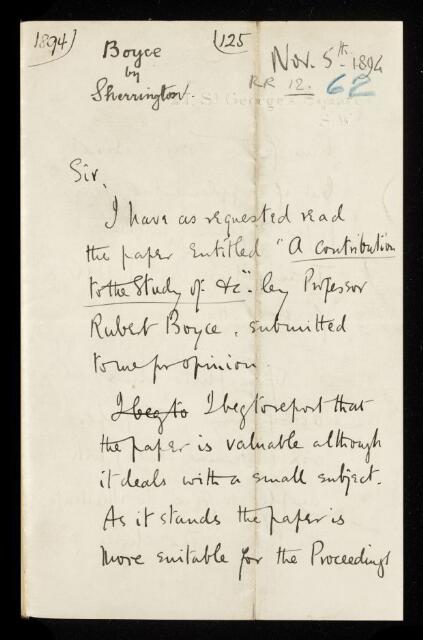 1894) (125
Boyce
by
Sherrington.
Nov. 5th 1894
RR 12. 62
St George's Square
S.W.
Sir,
I have as requested read
the paper entitled "A contribution
to the Study of &c" by Professor
Rubert Boyce, submitted
to me for opinion.
I beg to I beg to report that
the paper is valuable although
it deals with a small subject.
As it stands the paper is
more suitable for the Proceedings